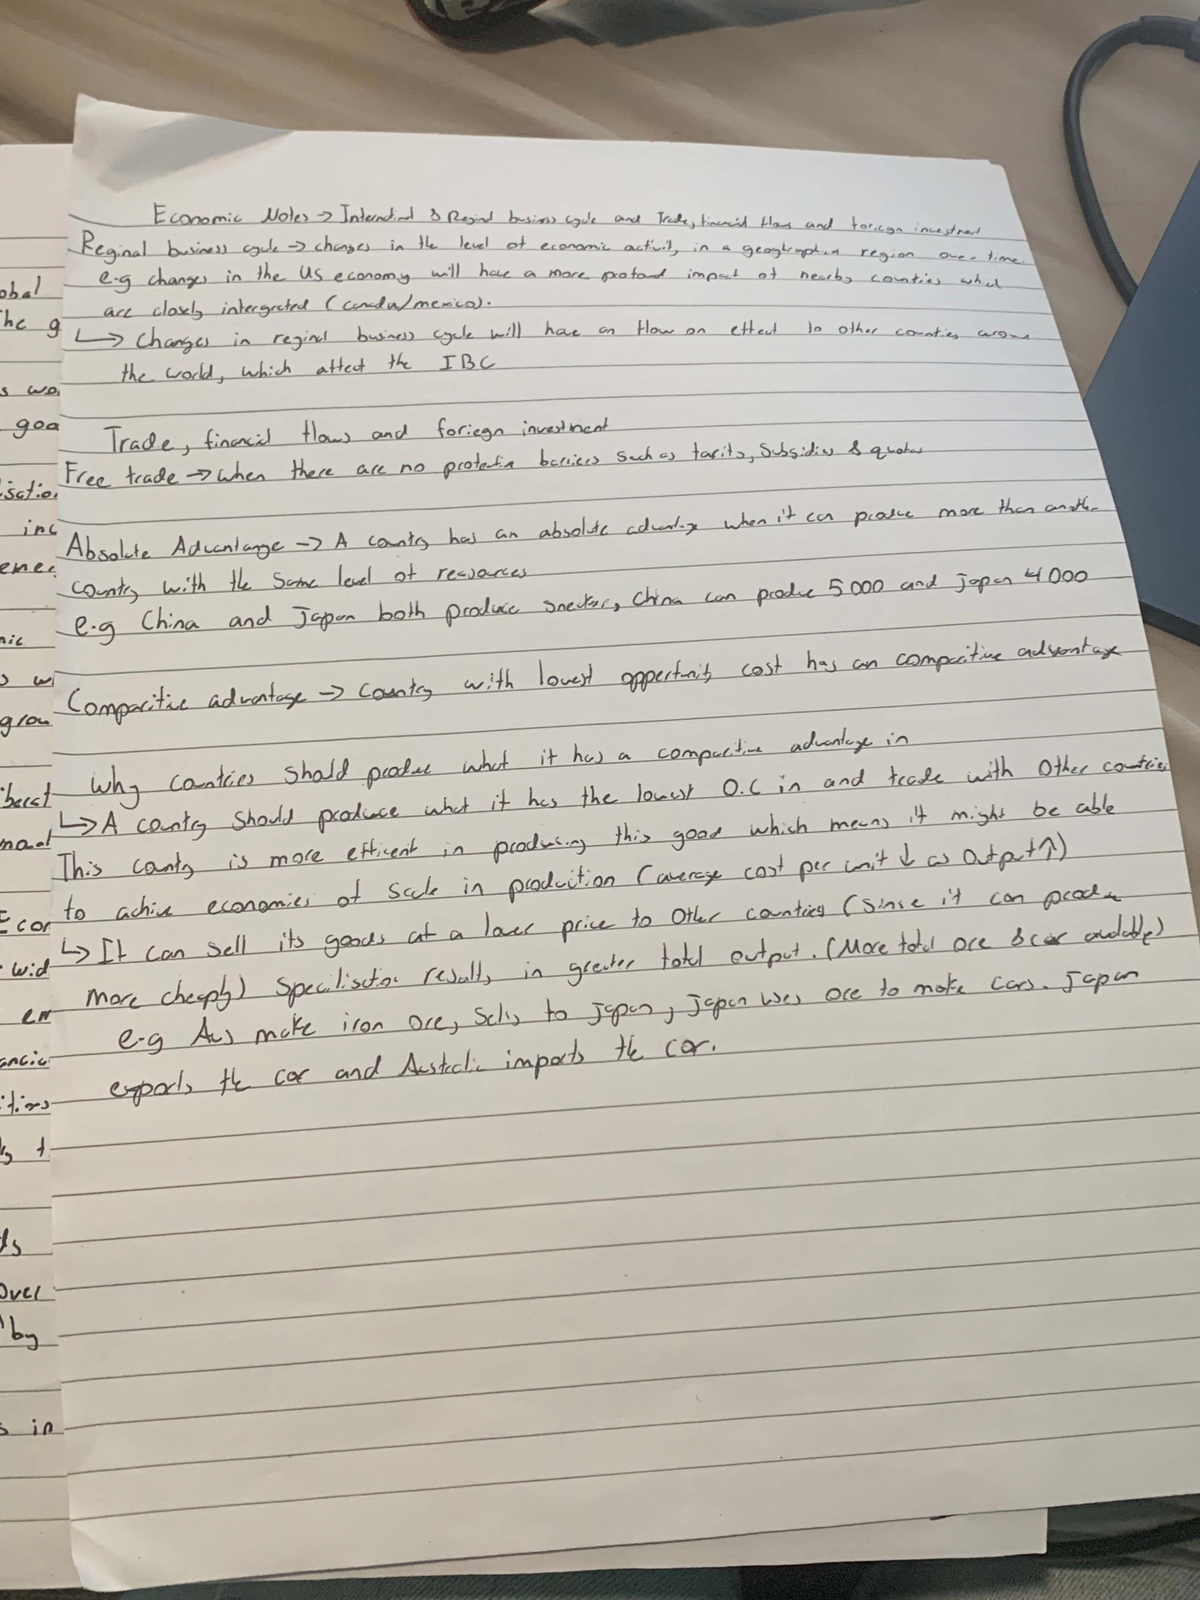 Economic Notes → Internatinal & Reginal business cycle and Trade, financial flows and foriegn investment
Reginal business cycle → changes in the level of economic activity in a geographical region over time.
e.g changes in the US economy will have a more profond impact of nearby counties which
are closely intergrated (canada/mexico).
↳ Changes in reginal business cycle will have an flow on effect to other counties aroun
the world, which affect the IBC
Trade, financial flows and foriegn investment
Free trade → when there are no protective barriers such as tarifs, Subsidies & quotas
Absolute Advantange → A country has an absolute advantage when it can produce more than another
country with the same level of resources
e.g China and Japan both produce sneckers, China can produce 5000 and Japan 4000
Comparitive advantage → Country with lowest oppertunity cost has an comparitive advantage
Why countries should produce what it has a comparitive advantage in
↳ A country should produce what it has the lowest O.C in and trade with Other countries
This county is more efficent in producing this good which means it might be able
to achive economies of Scale in production (average cost per unit ↓ as Output ↑)
↳ It can sell its goods at a lower price to Other countries (Since it can produce
more cheaply) Specilisation results in greater total output. (More total ore & car available)
e.g Aus make iron Ore, Sells to Japan, Japan uses ore to make cars. Japan
exports the car and Australia imports the car.
obal
The g
s wo
goa
isatio
inc
ener
mic
s wi
grow
iberat
mad
Econ
wid
em
ancia
itions
s t
ds
Over
by
s in